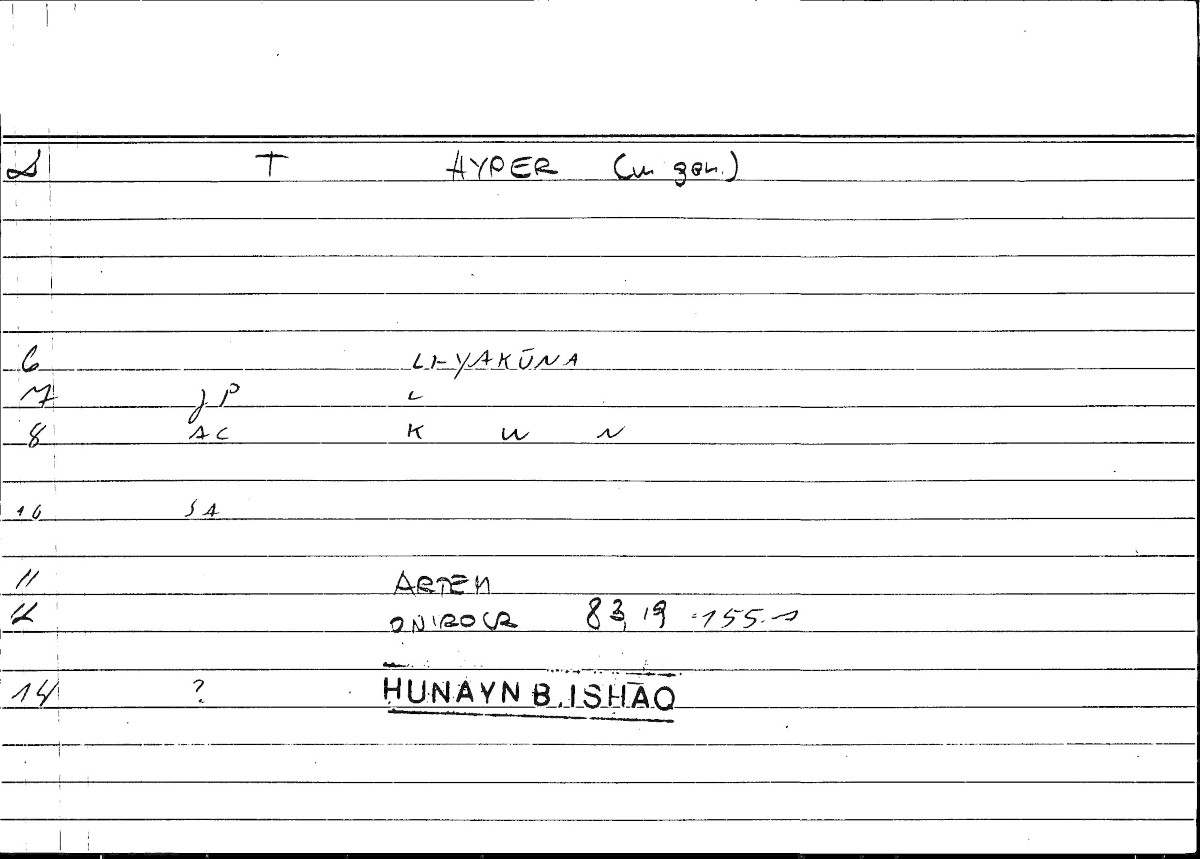 T HYPER (w gen.)
6 LI-YAKŪNA
7 JP L
8 AC K W N
10 SA
11 ARTEM
12 ONIROCR 83,19 - 155.1
14 ? HUNAYN B. ISHĀQ